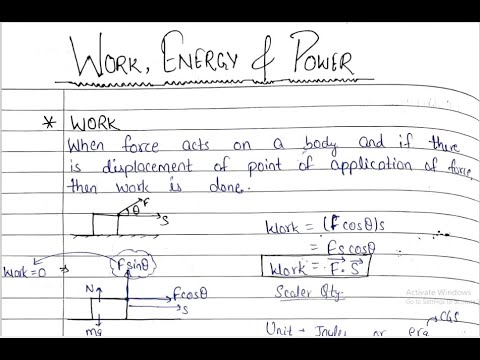 WORK, ENERGY & POWER
* WORK
When force acts on a body and if there
is displacement of point of application of force,
then work is done.
F
θ
S
Work = (F cosθ)s
= Fs cosθ
Work = F⃗ . S⃗
Scaler Qty.
Work = 0 ⇒
Fsinθ
N
Fcosθ
S
mg
CGS
Unit - Joules or erg
Activate Windows
Go to Settings to activate Windows